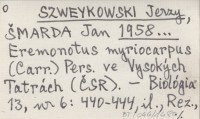 SZWEYKOWSKI Jerzy,
ŠMARDA Jan 1958...
Eremonotus myriocarpus
(Carr.) Pers. ve Vysokých
Tatrách (ČSR). — Biológia
13, nr 6: 440-444, il., Rez.,